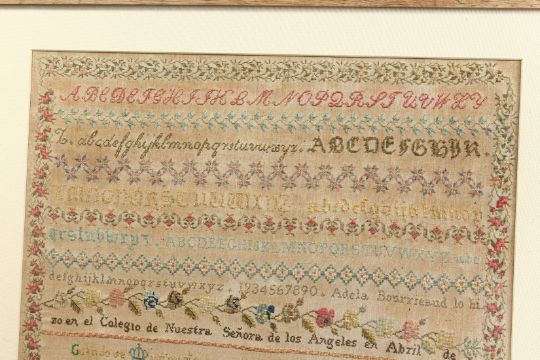 ABCDEFGHIJKLMNOPQRSTUVWXY
Z. abcdefghijklmnopqrstuvwxyz. ABCDEFGHIJK.
KLMNOPQRSTUVWXYZ. abcdefghijklmnop
qrstuvwxyz. ABCDEFGHIJKLMNOPQRSTUVWXYZ abc
defghijklmnopqrstuvwxyz 1234567890. Adela Bourzieaud lo hi
zo en el Colegio de Nuestra Señora de los Angeles en Abril de